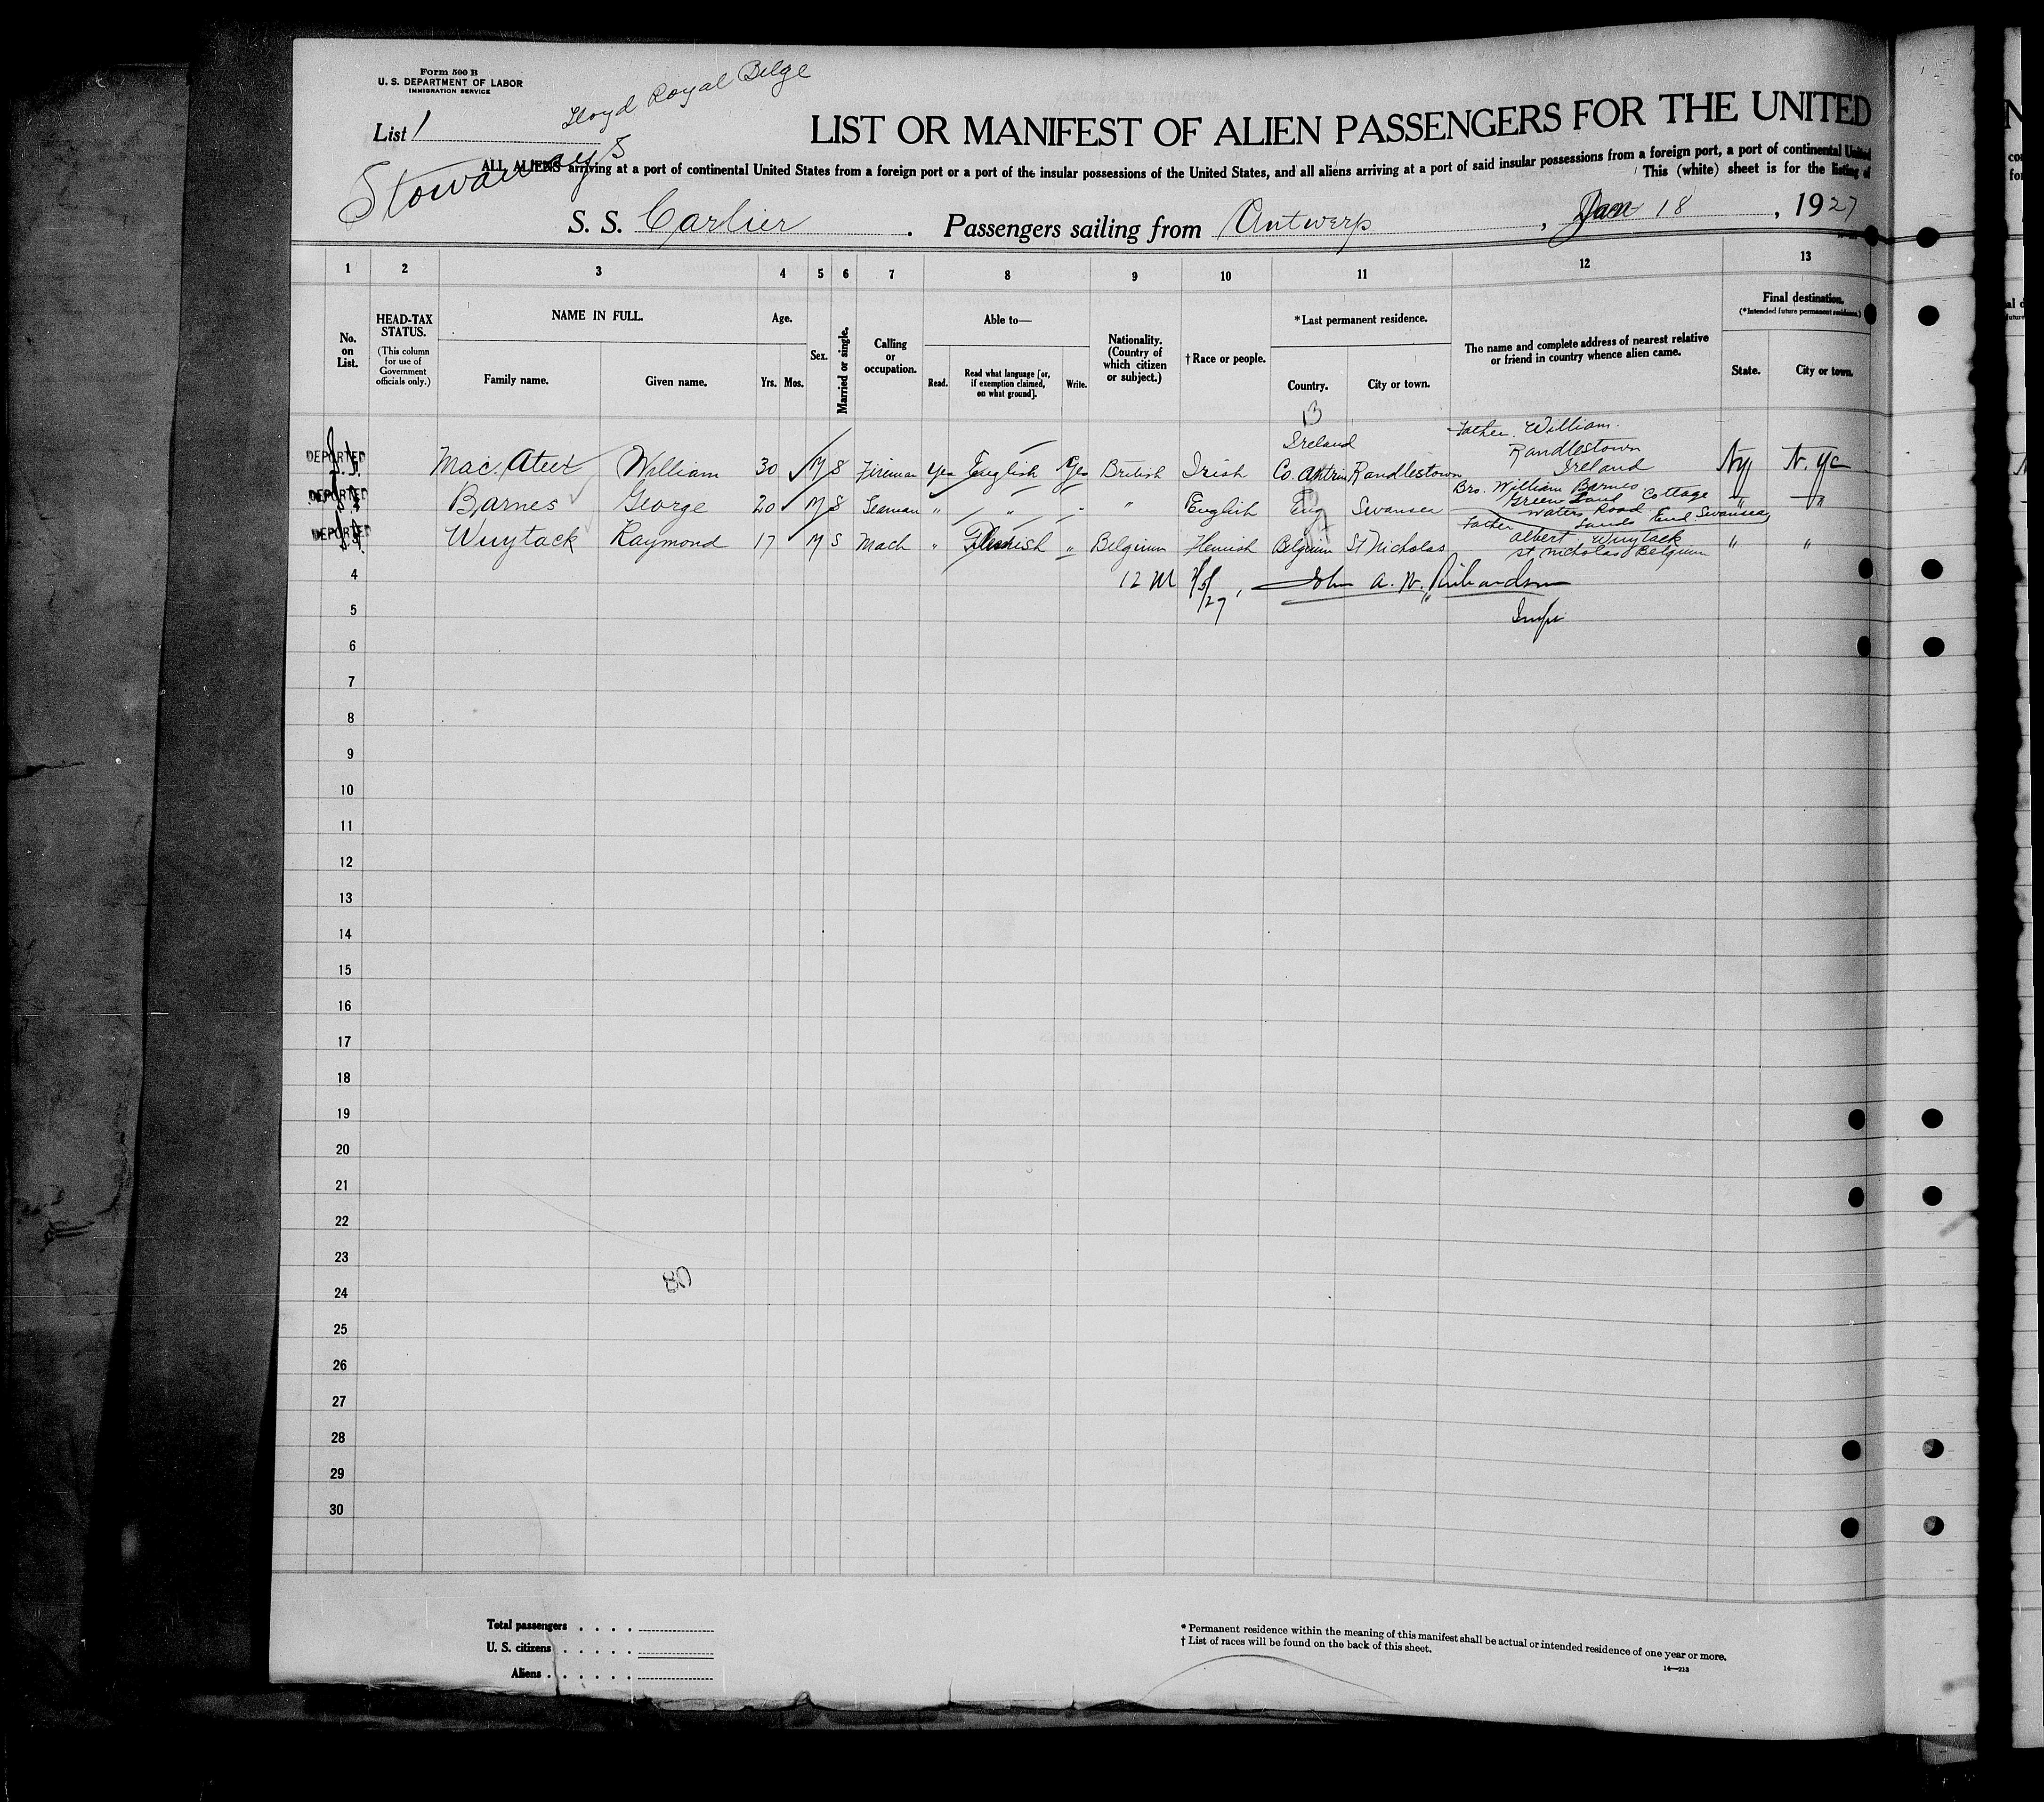 Form 500 B
U. S. DEPARTMENT OF LABOR
IMMIGRATION SERVICE
Lloyd Royal Belge
List 1
LIST OR MANIFEST OF ALIEN PASSENGERS FOR THE UNITED
Stowaways
ALL ALIENS arriving at a port of continental United States from a foreign port or a port of the insular possessions of the United States, and all aliens arriving at a port of said insular possessions from a foreign port, a port of continental United
This (white) sheet is for the listing of
S. S. Carlier. Passengers sailing from Antwerp, Jan 18, 1927
1 2 3 4 5 6 7 8 9 10 11 12 13
No. on List.
HEAD-TAX STATUS.
(This column for use of Government officials only.)
NAME IN FULL.
Family name. Given name.
Age.
Yrs. Mos.
Sex.
Married or single.
Calling or occupation.
Able to—
Read. Read what language [or, if exemption claimed, on what ground]. Write.
Nationality. (Country of which citizen or subject.)
†Race or people.
*Last permanent residence.
Country. City or town.
The name and complete address of nearest relative or friend in country whence alien came.
Final destination.
(*Intended future permanent residence.)
State. City or town.
B
Father William
Ireland Randlestown
DEPORTED Mac Ateer William 30 M S Fireman Yes English Yes British Irish Co. Antrim Randlestown Ireland Ny N.Yc
Bro. William Barnes
DEPORTED Barnes George 20 M S Seaman " " " " English Eng Swansea Green Land Cottage " "
Waters Road
Lands End Swansea
Father
DEPORTED Wuytack Raymond 17 M S Mach " Flemish " Belgium Flemish Belgium St Nicholas Albert Wuytack " "
St. Nicholas Belgium
4 12 M 2/5/27, John A. W. Richardson
5 Insp
6
7
8
9
10
11
12
13
14
15
16
17
18
19
20
21
22
23
24
25
26
27
28
29
30
Total passengers . . . .
U. S. citizens . . . . . .
Aliens . . . . . . .
* Permanent residence within the meaning of this manifest shall be actual or intended residence of one year or more.
† List of races will be found on the back of this sheet.
14—213